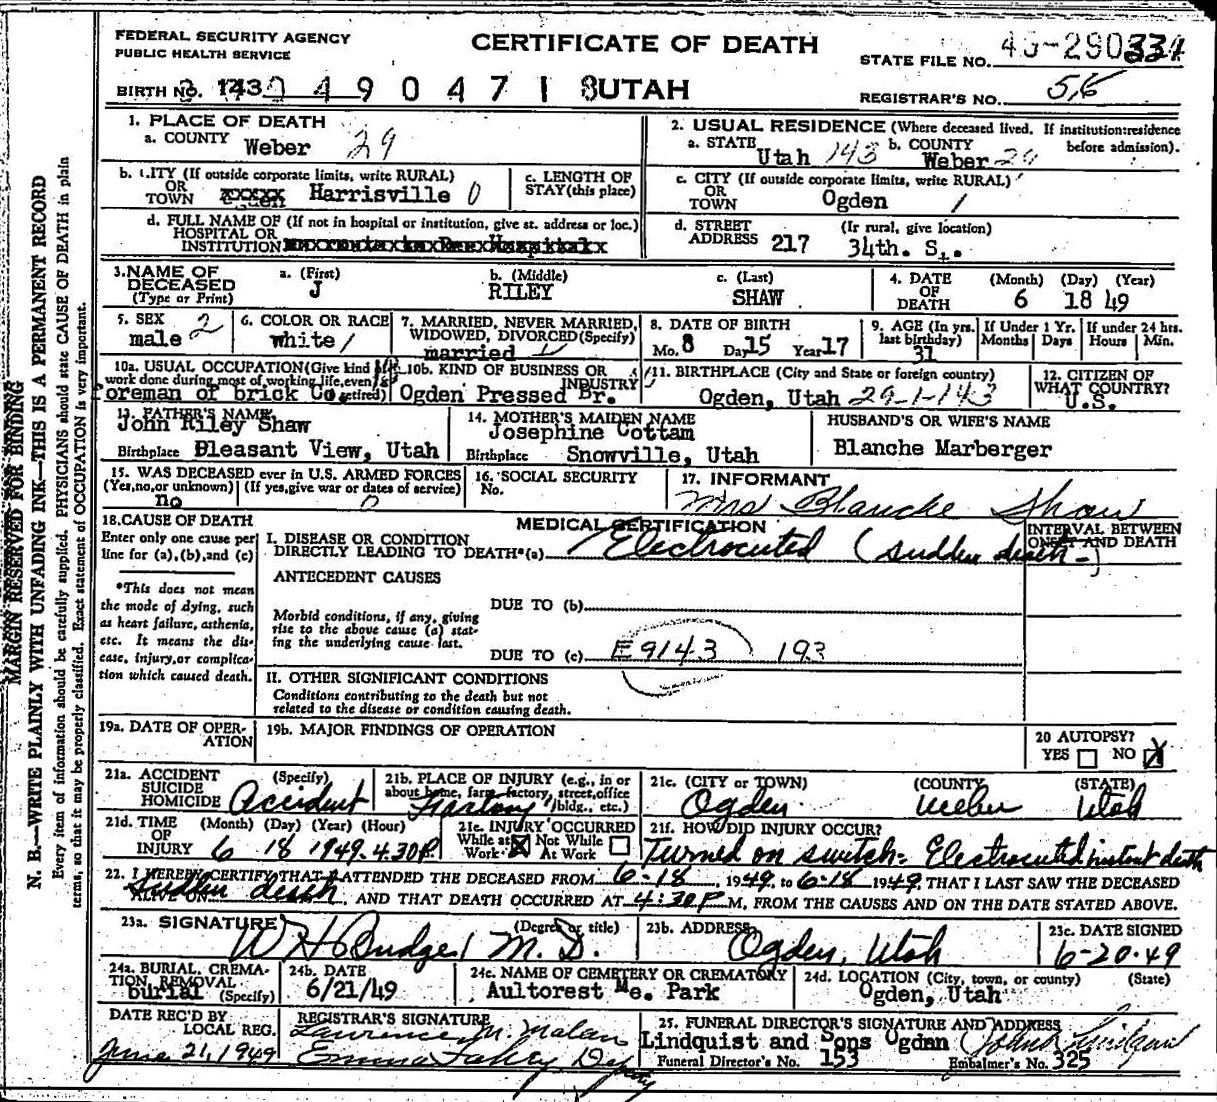 FEDERAL SECURITY AGENCY
PUBLIC HEALTH SERVICE
CERTIFICATE OF DEATH
STATE FILE NO.
BIRTH NO. 143 490471 8 UTAH
REGISTRAR'S NO. 56
1. PLACE OF DEATH
a. COUNTY Weber 29
2. USUAL RESIDENCE (Where deceased lived. If institution: residence before admission).
a. STATE Utah 143 b. COUNTY Weber 29
b. CITY (If outside corporate limits, write RURAL) OR TOWN Harrisville 0
c. LENGTH OF STAY (this place)
c. CITY (If outside corporate limits, write RURAL) OR TOWN Ogden 1
d. FULL NAME OF HOSPITAL OR INSTITUTION (If not in hospital or institution, give st. address or loc.)
d. STREET ADDRESS (If rural, give location) 217 34th. St.
3. NAME OF DECEASED (Type or Print)
a. (First) J b. (Middle) RILEY c. (Last) SHAW
4. DATE OF DEATH (Month) (Day) (Year) 6 18 49
5. SEX male 2
6. COLOR OR RACE white 1
7. MARRIED, NEVER MARRIED, WIDOWED, DIVORCED (Specify) married
8. DATE OF BIRTH Mo. 8 Da 15 Year 17
9. AGE (In yrs. last birthday) 31
If Under 1 Yr. Months Days
If under 24 hrs. Hours Min.
10a. USUAL OCCUPATION (Give kind work done during most of working life, even if retired) Foreman of brick Co.
10b. KIND OF BUSINESS OR INDUSTRY Ogden Pressed Br.
11. BIRTHPLACE (City and State or foreign country) Ogden, Utah 29-1-143
12. CITIZEN OF WHAT COUNTRY? U.S.
13. FATHER'S NAME John Riley Shaw
Birthplace Pleasant View, Utah
14. MOTHER'S MAIDEN NAME Josephine Cottam
Birthplace Snowville, Utah
HUSBAND'S OR WIFE'S NAME
Blanche Marberger
15. WAS DECEASED ever in U.S. ARMED FORCES
(Yes, no, or unknown) (If yes, give war or dates of service)
no
16. SOCIAL SECURITY No.
17. INFORMANT
Mrs Blanche Shaw
18. CAUSE OF DEATH
Enter only one cause per line for (a), (b), and (c)
*This does not mean the mode of dying, such as heart failure, asthenia, etc. It means the disease, injury, or complication which caused death.
MEDICAL CERTIFICATION
I. DISEASE OR CONDITION DIRECTLY LEADING TO DEATH*(a) Electrocuted (sudden death-)
INTERVAL BETWEEN ONSET AND DEATH
ANTECEDENT CAUSES
DUE TO (b)
Morbid conditions, if any, giving rise to the above cause (a) stating the underlying cause last.
DUE TO (c) E 914.3 193
II. OTHER SIGNIFICANT CONDITIONS
Conditions contributing to the death but not related to the disease or condition causing death.
19a. DATE OF OPERATION
19b. MAJOR FINDINGS OF OPERATION
20 AUTOPSY?
YES NO X
21a. ACCIDENT SUICIDE HOMICIDE (Specify) Accident
21b. PLACE OF INJURY (e.g., in or about home, farm, factory, street, office bldg., etc.) Factory
21c. (CITY or TOWN) (COUNTY) (STATE)
Ogden Weber Utah
21d. TIME OF INJURY (Month) (Day) (Year) (Hour) 6 18 1949 4:30P
21e. INJURY OCCURRED
While at Work X Not While At Work
21f. HOW DID INJURY OCCUR?
Turned on switch - Electrocuted instant death
22. I HEREBY CERTIFY THAT I ATTENDED THE DECEASED FROM 6-18, 1949, to 6-18 1949, THAT I LAST SAW THE DECEASED
ALIVE ON sudden death, AND THAT DEATH OCCURRED AT 4:30P M, FROM THE CAUSES AND ON THE DATE STATED ABOVE.
23a. SIGNATURE (Degree or title) W H Budge M.D.
23b. ADDRESS Ogden, Utah
23c. DATE SIGNED 6-20-49
24a. BURIAL, CREMATION, REMOVAL (Specify) burial
24b. DATE 6/21/49
24c. NAME OF CEMETERY OR CREMATORY
Aultorest Me. Park
24d. LOCATION (City, town, or county) (State)
Ogden, Utah
DATE REC'D BY LOCAL REG.
June 21, 1949
REGISTRAR'S SIGNATURE
Lawrence M. Malan
Deputy
25. FUNERAL DIRECTOR'S SIGNATURE AND ADDRESS
Lindquist and Sons Ogden
Funeral Director's No. 153 Embalmer's No. 325
MARGIN RESERVED FOR BINDING
N. B.—WRITE PLAINLY WITH UNFADING INK—THIS IS A PERMANENT RECORD
Every item of information should be carefully supplied. PHYSICIANS should state CAUSE OF DEATH in plain
terms, so that it may be properly classified. Exact statement of OCCUPATION is very important.